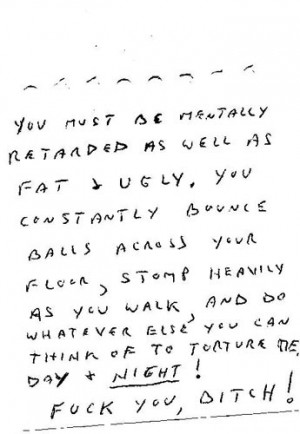 YOU MUST BE MENTALLY
RETARDED AS WELL AS
FAT & UGLY. YOU
CONSTANTLY BOUNCE
BALLS ACROSS YOUR
FLOOR, STOMP HEAVILY
AS YOU WALK, AND DO
WHATEVER ELSE YOU CAN
THINK OF TO TORTURE ME,
DAY & NIGHT!
FUCK YOU, BITCH!